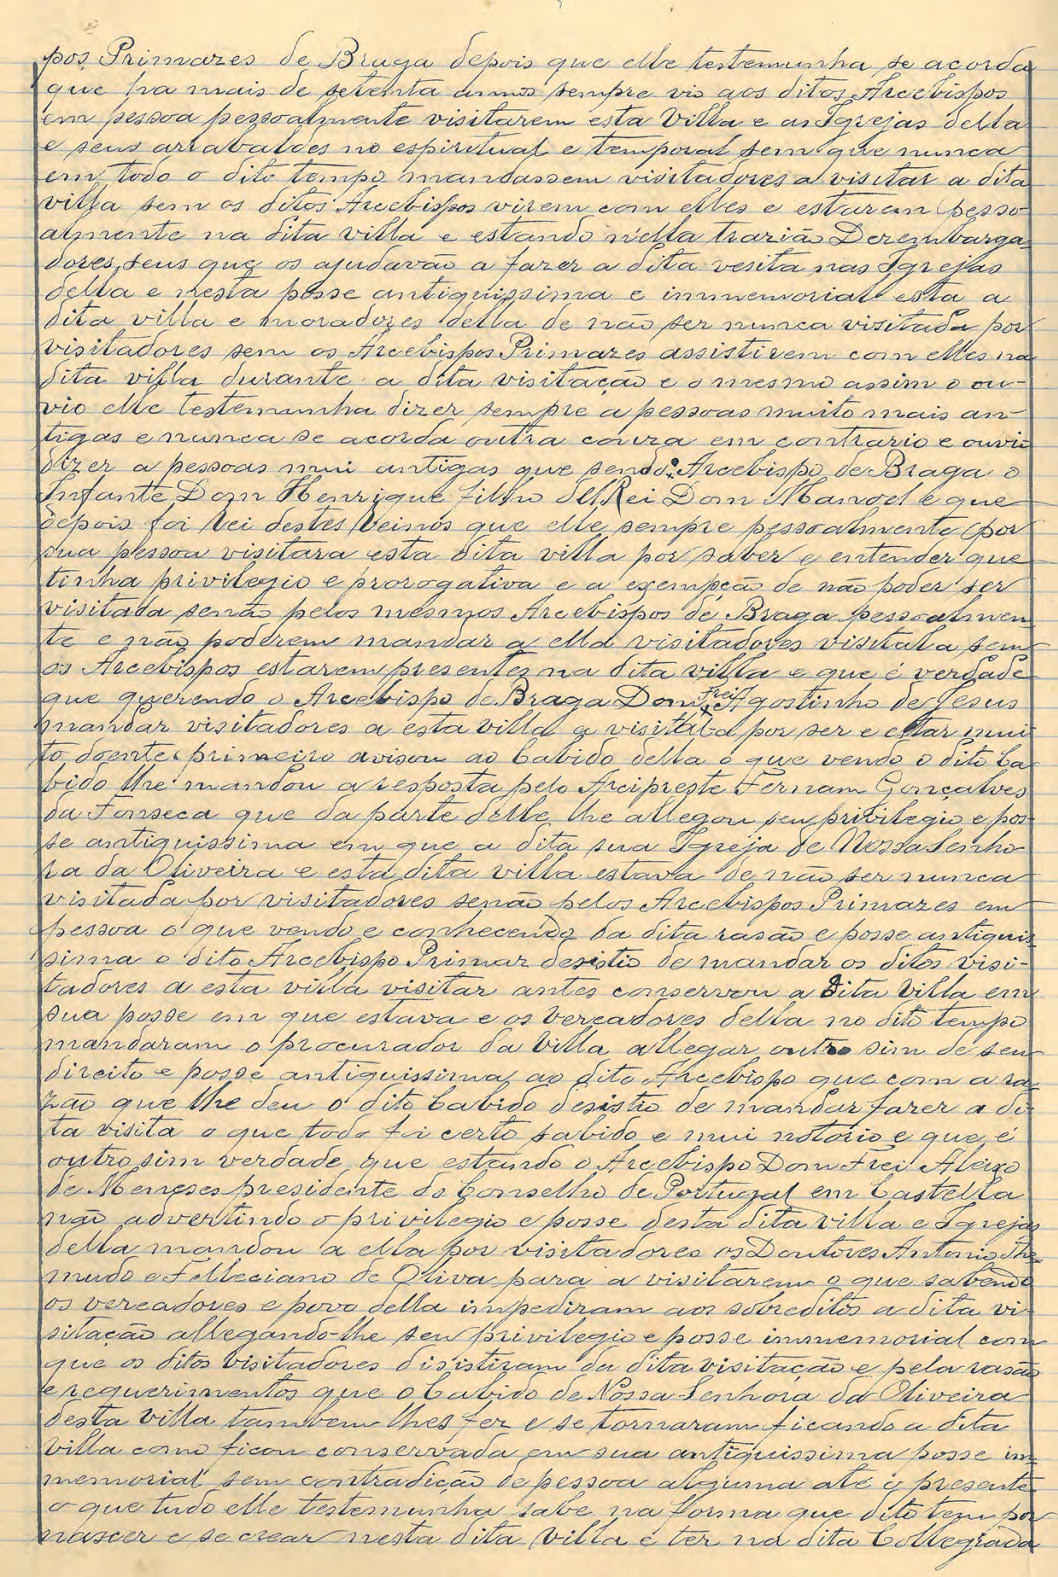 pos Primazes de Braga depois que elle testemunha se acorda
que ha mais de setenta annos sempre vio aos ditos Arcebispos
em pessoa pessoalmente visitarem esta Villa e as Igrejas della
e seus arrabaldes no espiritual e temporal sem que nunca
em todo o dito tempo mandassem visitadores a visitar a dita
villa sem os ditos Arcebispos virem com elles e estarem pesso-
almente na dita villa e estando n'ella trazião Dezembarga-
dores seus que os ajudavão a fazer a dita vesita nas Igrejas
della e nesta posse antiquissima e immemorial esta a
dita villa e moradores della de não ser nunca visitada por
visitadores sem os Arcebispos Primazes assistirem com elles na
dita villa durante a dita visitação e o mesmo assim o ou-
vio elle testemunha dizer sempre a pessoas muito mais an-
tigas e nunca se acorda outra couza em contrario e ouvio
dizer a pessoas mui antigas que sendo Arcebispo de Braga o
Infante Dom Henrique filho del Rei Dom Manoel e que
depois foi rei destes reinos que elle sempre pessoalmente por
sua pessoa visitara esta dita villa por saber e entender que
tinha privilegio e prorogativa e a exempção de não poder ser
visitada senão pelos mesmos Arcebispos de Braga pessoalmen-
te e não poderem mandar a ella visitadores visitala sem
os Arcebispos estarem presentes na dita villa e que é verdade
que querendo o Arcebispo de Braga Dom Frei Agostinho de Jesus
mandar visitadores a esta villa a visitala por ser e estar mui-
to doente primeiro avisou ao Cabido della o que vendo o dito Ca-
bido lhe mandou a resposta pelo Arcipreste Fernam Gonçalves
da Fonseca que da parte delle lhe allegou seu privilegio e pos-
se antiquissima em que a dita sua Igreja de Nossa Senho-
ra da Oliveira e esta dita villa estava de não ser nunca
visitada por visitadores senão pelos Arcebispos Primazes em
pessoa o que vendo e conhecendo da dita rasão e posse antiquis-
sima o dito Arcebispo Primaz desistio de mandar os ditos visi-
tadores a esta villa visitar antes conservou a dita Villa em
sua posse em que estava e os vereadores della no dito tempo
mandaram o procurador da Villa allegar outro sim de seu
direito e posse antiquissima ao dito Arcebispo que com a ra-
zão que lhe deu o dito Cabido desistio de mandar fazer a di-
ta visita o que todo foi certo sabido e mui notorio e que é
outro sim verdade que estando o Arcebispo Dom Frei Aleixo
de Meneses presidente do Conselho de Portugal em Castella
não advertindo o privilegio e posse desta dita villa e Igrejas
della mandou a ella por visitadores os Doutores Antonio The-
mudo e Felleciano de Oliva para a visitarem o que sabendo
os vereadores e povo della impediram aos sobreditos a dita vi-
sitação allegando-lhe seu privilegio e posse immemorial com
que os ditos visitadores disistiram da dita visitação e pela rasão
e requerimentos que o Cabido de Nossa Senhora da Oliveira
desta Villa tambem lhes fez e se tornaram ficando a dita
villa como ficou conservada em sua antiquissima posse im-
memorial sem contradição de pessoa alguma até o presente
o que tudo elle testemunha sabe na forma que dito tem por
nascer e se crear nesta dita Villa e ter na dita Collegiada